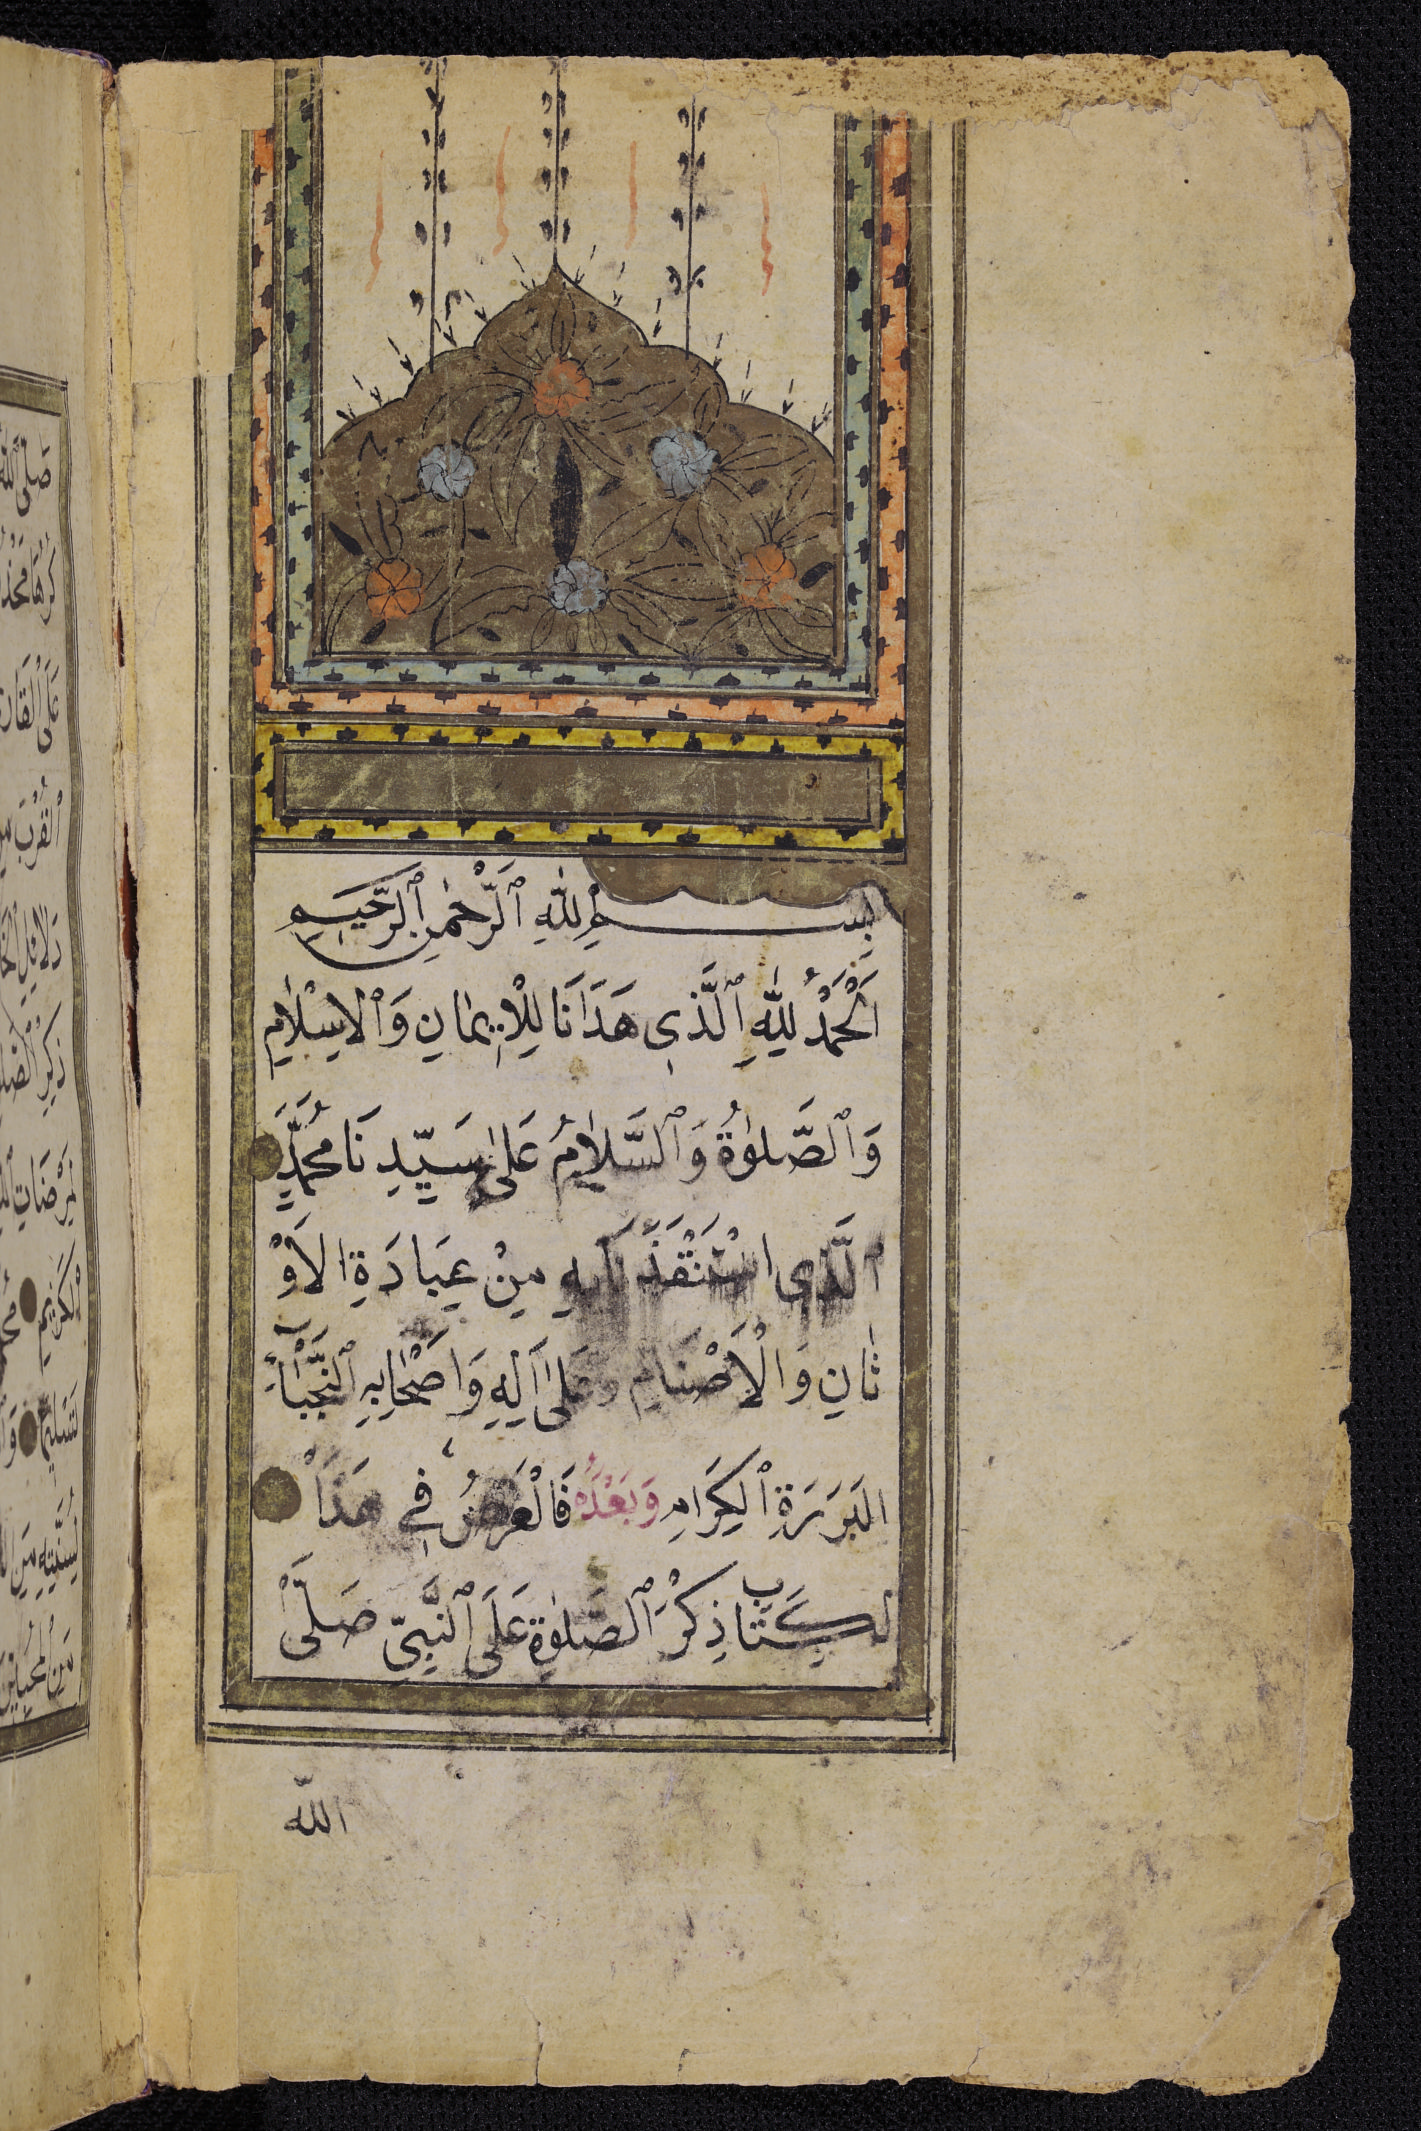 بِسْمِ اللّٰهِ ٱلرَّحْمٰنِ ٱلرَّحِيمِ
اَلْحَمْدُ لِلّٰهِ ٱلَّذِى هَدَانَا لِلْاِيمَانِ وَٱلْاِسْلَامِ
وَٱلصَّلٰوةُ وَٱلسَّلَامُ عَلٰى سَيِّدِنَا مُحَمَّدٍ
ٱلَّذِى اسْتَنْقَذَنَا بِهِ مِنْ عِبَادَةِ الْاَوْ
ثَانِ وَالْاَصْنَامِ وَعَلٰى اٰلِهِ وَاَصْحَابِهِ ٱلنُّجَبَاءِ
الْبَرَرَةِ ٱلْكِرَامِ وَبَعْدُ فَالْغَرَضُ فِى هَذَا
الْكِتَابِ ذِكْرُ ٱلصَّلٰوةِ عَلَى ٱلنَّبِيِّ صَلَّى
الله